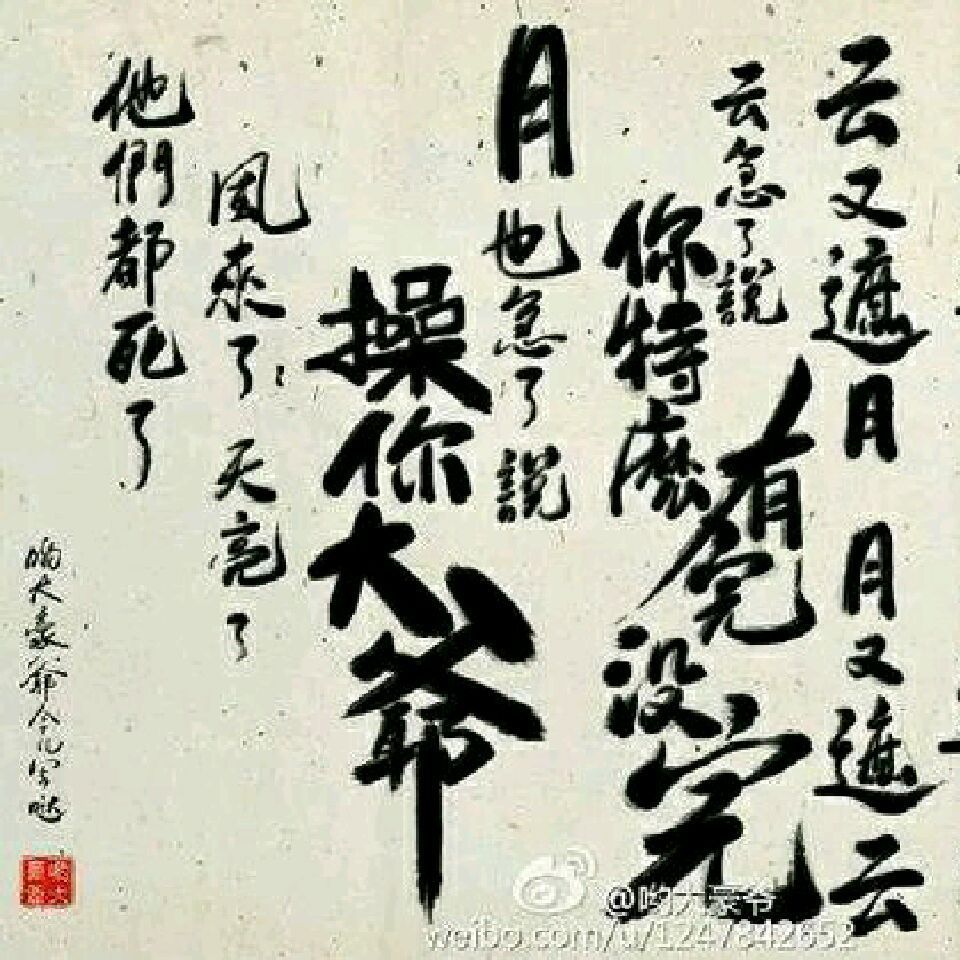 云又遮月 月又遮云
云急了說
你特麼有完沒完
月也急了說
操你大爺
風來了 天亮了
他們都死了
喲大豪爺
@哟大豪爷
weibo.com/u/1247842652